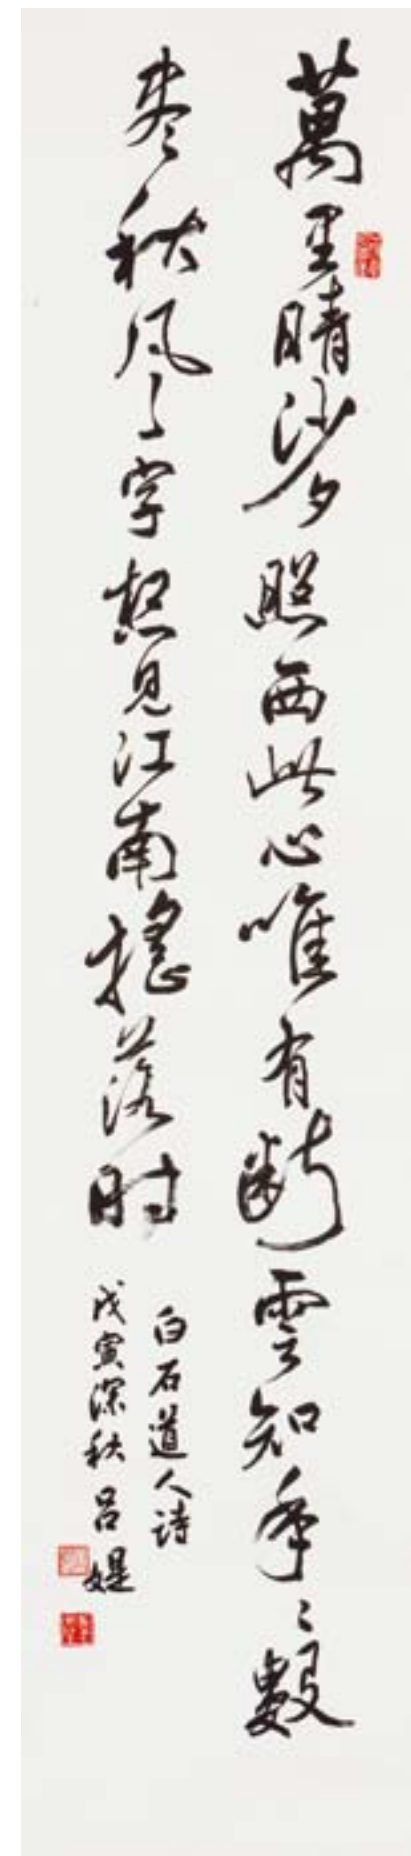 萬里晴沙夕照西此心唯有断雲知年〻數
盡秋风字想見江南摇落时
白石道人诗
戊寅深秋 吕媞